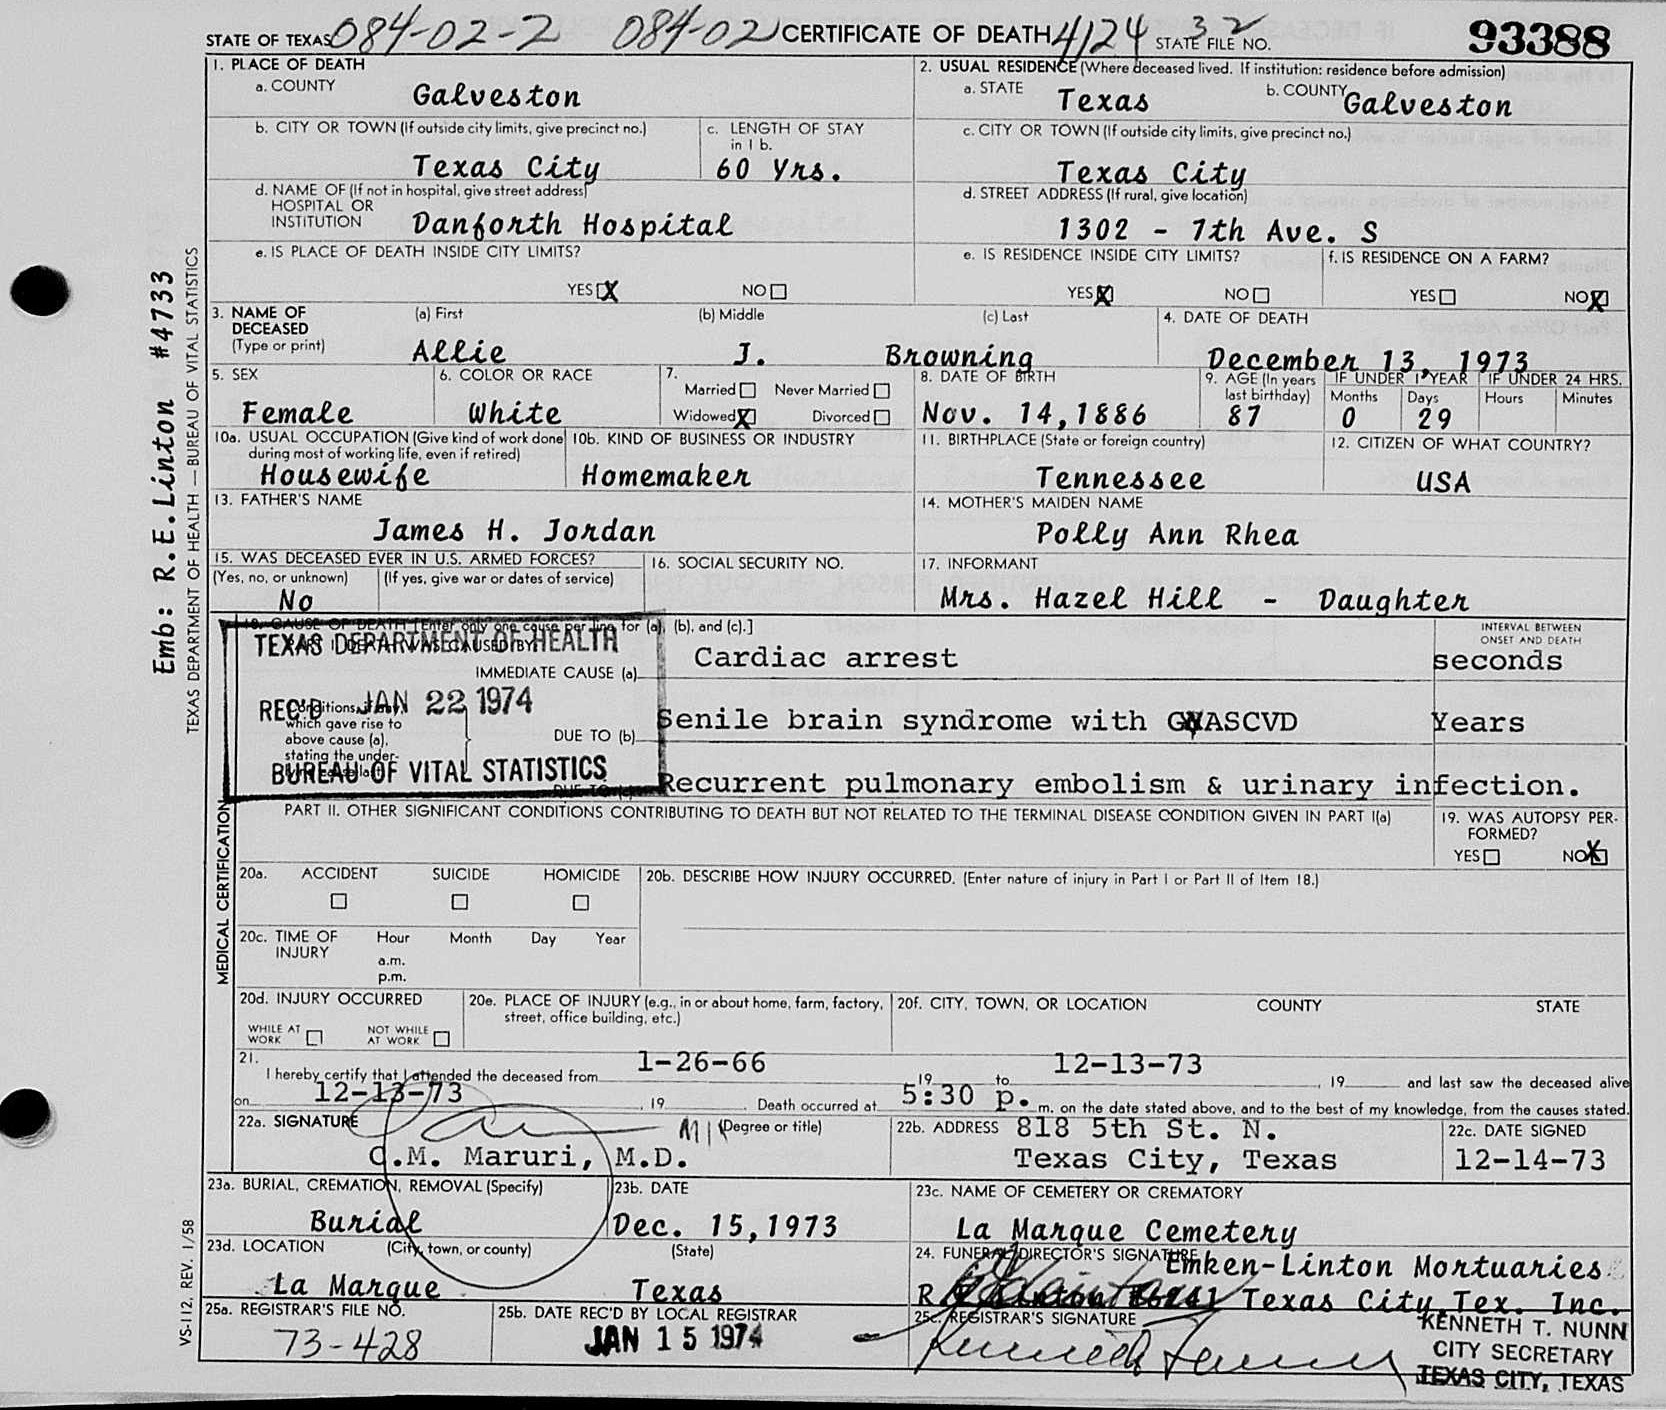 STATE OF TEXAS 084-02-2 084-02 CERTIFICATE OF DEATH 4124 32 STATE FILE NO. 93388
1. PLACE OF DEATH
a. COUNTY Galveston
2. USUAL RESIDENCE (Where deceased lived. If institution: residence before admission)
a. STATE Texas b. COUNTY Galveston
b. CITY OR TOWN (If outside city limits, give precinct no.) Texas City
c. LENGTH OF STAY in 1 b. 60 Yrs.
c. CITY OR TOWN (If outside city limits, give precinct no.) Texas City
d. NAME OF (If not in hospital, give street address)
HOSPITAL OR
INSTITUTION Danforth Hospital
d. STREET ADDRESS (If rural, give location)
1302 - 7th Ave. S
e. IS PLACE OF DEATH INSIDE CITY LIMITS?
YES X NO
e. IS RESIDENCE INSIDE CITY LIMITS?
YES X NO
f. IS RESIDENCE ON A FARM?
YES NO X
3. NAME OF DECEASED (Type or print)
(a) First (b) Middle (c) Last
Allie J. Browning
4. DATE OF DEATH
December 13, 1973
5. SEX
Female
6. COLOR OR RACE
White
7. Married Never Married
Widowed X Divorced
8. DATE OF BIRTH
Nov. 14,1886
9. AGE (In years last birthday)
87
IF UNDER 1 YEAR
Months Days
0 29
IF UNDER 24 HRS.
Hours Minutes
10a. USUAL OCCUPATION (Give kind of work done during most of working life, even if retired)
Housewife
10b. KIND OF BUSINESS OR INDUSTRY
Homemaker
11. BIRTHPLACE (State or foreign country)
Tennessee
12. CITIZEN OF WHAT COUNTRY?
USA
13. FATHER'S NAME
James H. Jordan
14. MOTHER'S MAIDEN NAME
Polly Ann Rhea
15. WAS DECEASED EVER IN U.S. ARMED FORCES?
(Yes, no, or unknown) (If yes, give war or dates of service)
No
16. SOCIAL SECURITY NO.
17. INFORMANT
Mrs. Hazel Hill - Daughter
18. CAUSE OF DEATH [Enter only one cause per line for (a), (b), and (c).]
INTERVAL BETWEEN
ONSET AND DEATH
TEXAS DEPARTMENT OF HEALTH
REC'D JAN 22 1974
BUREAU OF VITAL STATISTICS
PART I. DEATH WAS CAUSED BY:
IMMEDIATE CAUSE (a) Cardiac arrest seconds
Conditions, if any,
which gave rise to
above cause (a),
stating the under-
lying cause last.
DUE TO (b) Senile brain syndrome with G ASCVD Years
DUE TO (c) Recurrent pulmonary embolism & urinary infection.
PART II. OTHER SIGNIFICANT CONDITIONS CONTRIBUTING TO DEATH BUT NOT RELATED TO THE TERMINAL DISEASE CONDITION GIVEN IN PART I(a)
19. WAS AUTOPSY PER-
FORMED?
YES NO X
20a. ACCIDENT SUICIDE HOMICIDE
20b. DESCRIBE HOW INJURY OCCURRED. (Enter nature of injury in Part I or Part II of Item 18.)
20c. TIME OF INJURY Hour Month Day Year
a.m.
p.m.
20d. INJURY OCCURRED
WHILE AT WORK NOT WHILE AT WORK
20e. PLACE OF INJURY (e.g., in or about home, farm, factory, street, office building, etc.)
20f. CITY, TOWN, OR LOCATION COUNTY STATE
21.
I hereby certify that I attended the deceased from 1-26-66 19 to 12-13-73, 19 and last saw the deceased alive
on 12-13-73, 19 . Death occurred at 5:30 p. m. on the date stated above, and to the best of my knowledge, from the causes stated.
22a. SIGNATURE (Degree or title)
C.M. Maruri, M.D.
22b. ADDRESS 818 5th St. N.
Texas City, Texas
22c. DATE SIGNED
12-14-73
23a. BURIAL, CREMATION, REMOVAL (Specify)
Burial
23b. DATE
Dec. 15,1973
23c. NAME OF CEMETERY OR CREMATORY
La Marque Cemetery
23d. LOCATION (City, town, or county) (State)
La Marque Texas
24. FUNERAL DIRECTOR'S SIGNATURE Emken-Linton Mortuaries
R. E. Linton Texas City,Tex. Inc.
25a. REGISTRAR'S FILE NO.
73-428
25b. DATE REC'D BY LOCAL REGISTRAR
JAN 15 1974
25c. REGISTRAR'S SIGNATURE
KENNETH T. NUNN
CITY SECRETARY
TEXAS CITY, TEXAS
Emb: R.E.Linton #4733
TEXAS DEPARTMENT OF HEALTH — BUREAU OF VITAL STATISTICS
MEDICAL CERTIFICATION
VS-112, REV. 1/58